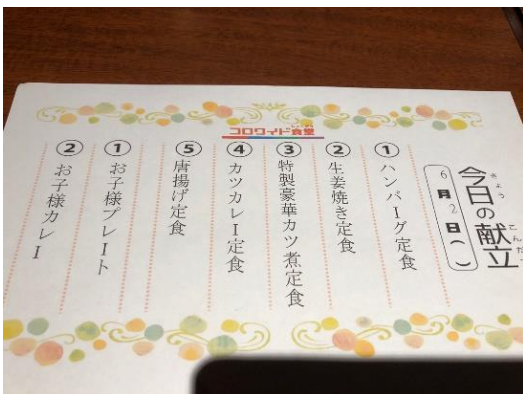 コロワイド食堂
今日の献立
きょう こんだ
6月2日( )
①ハンバーグ定食
②生姜焼き定食
③特製豪華カツ煮定食
④カツカレー定食
⑤唐揚げ定食
①お子様プレート
②お子様カレー